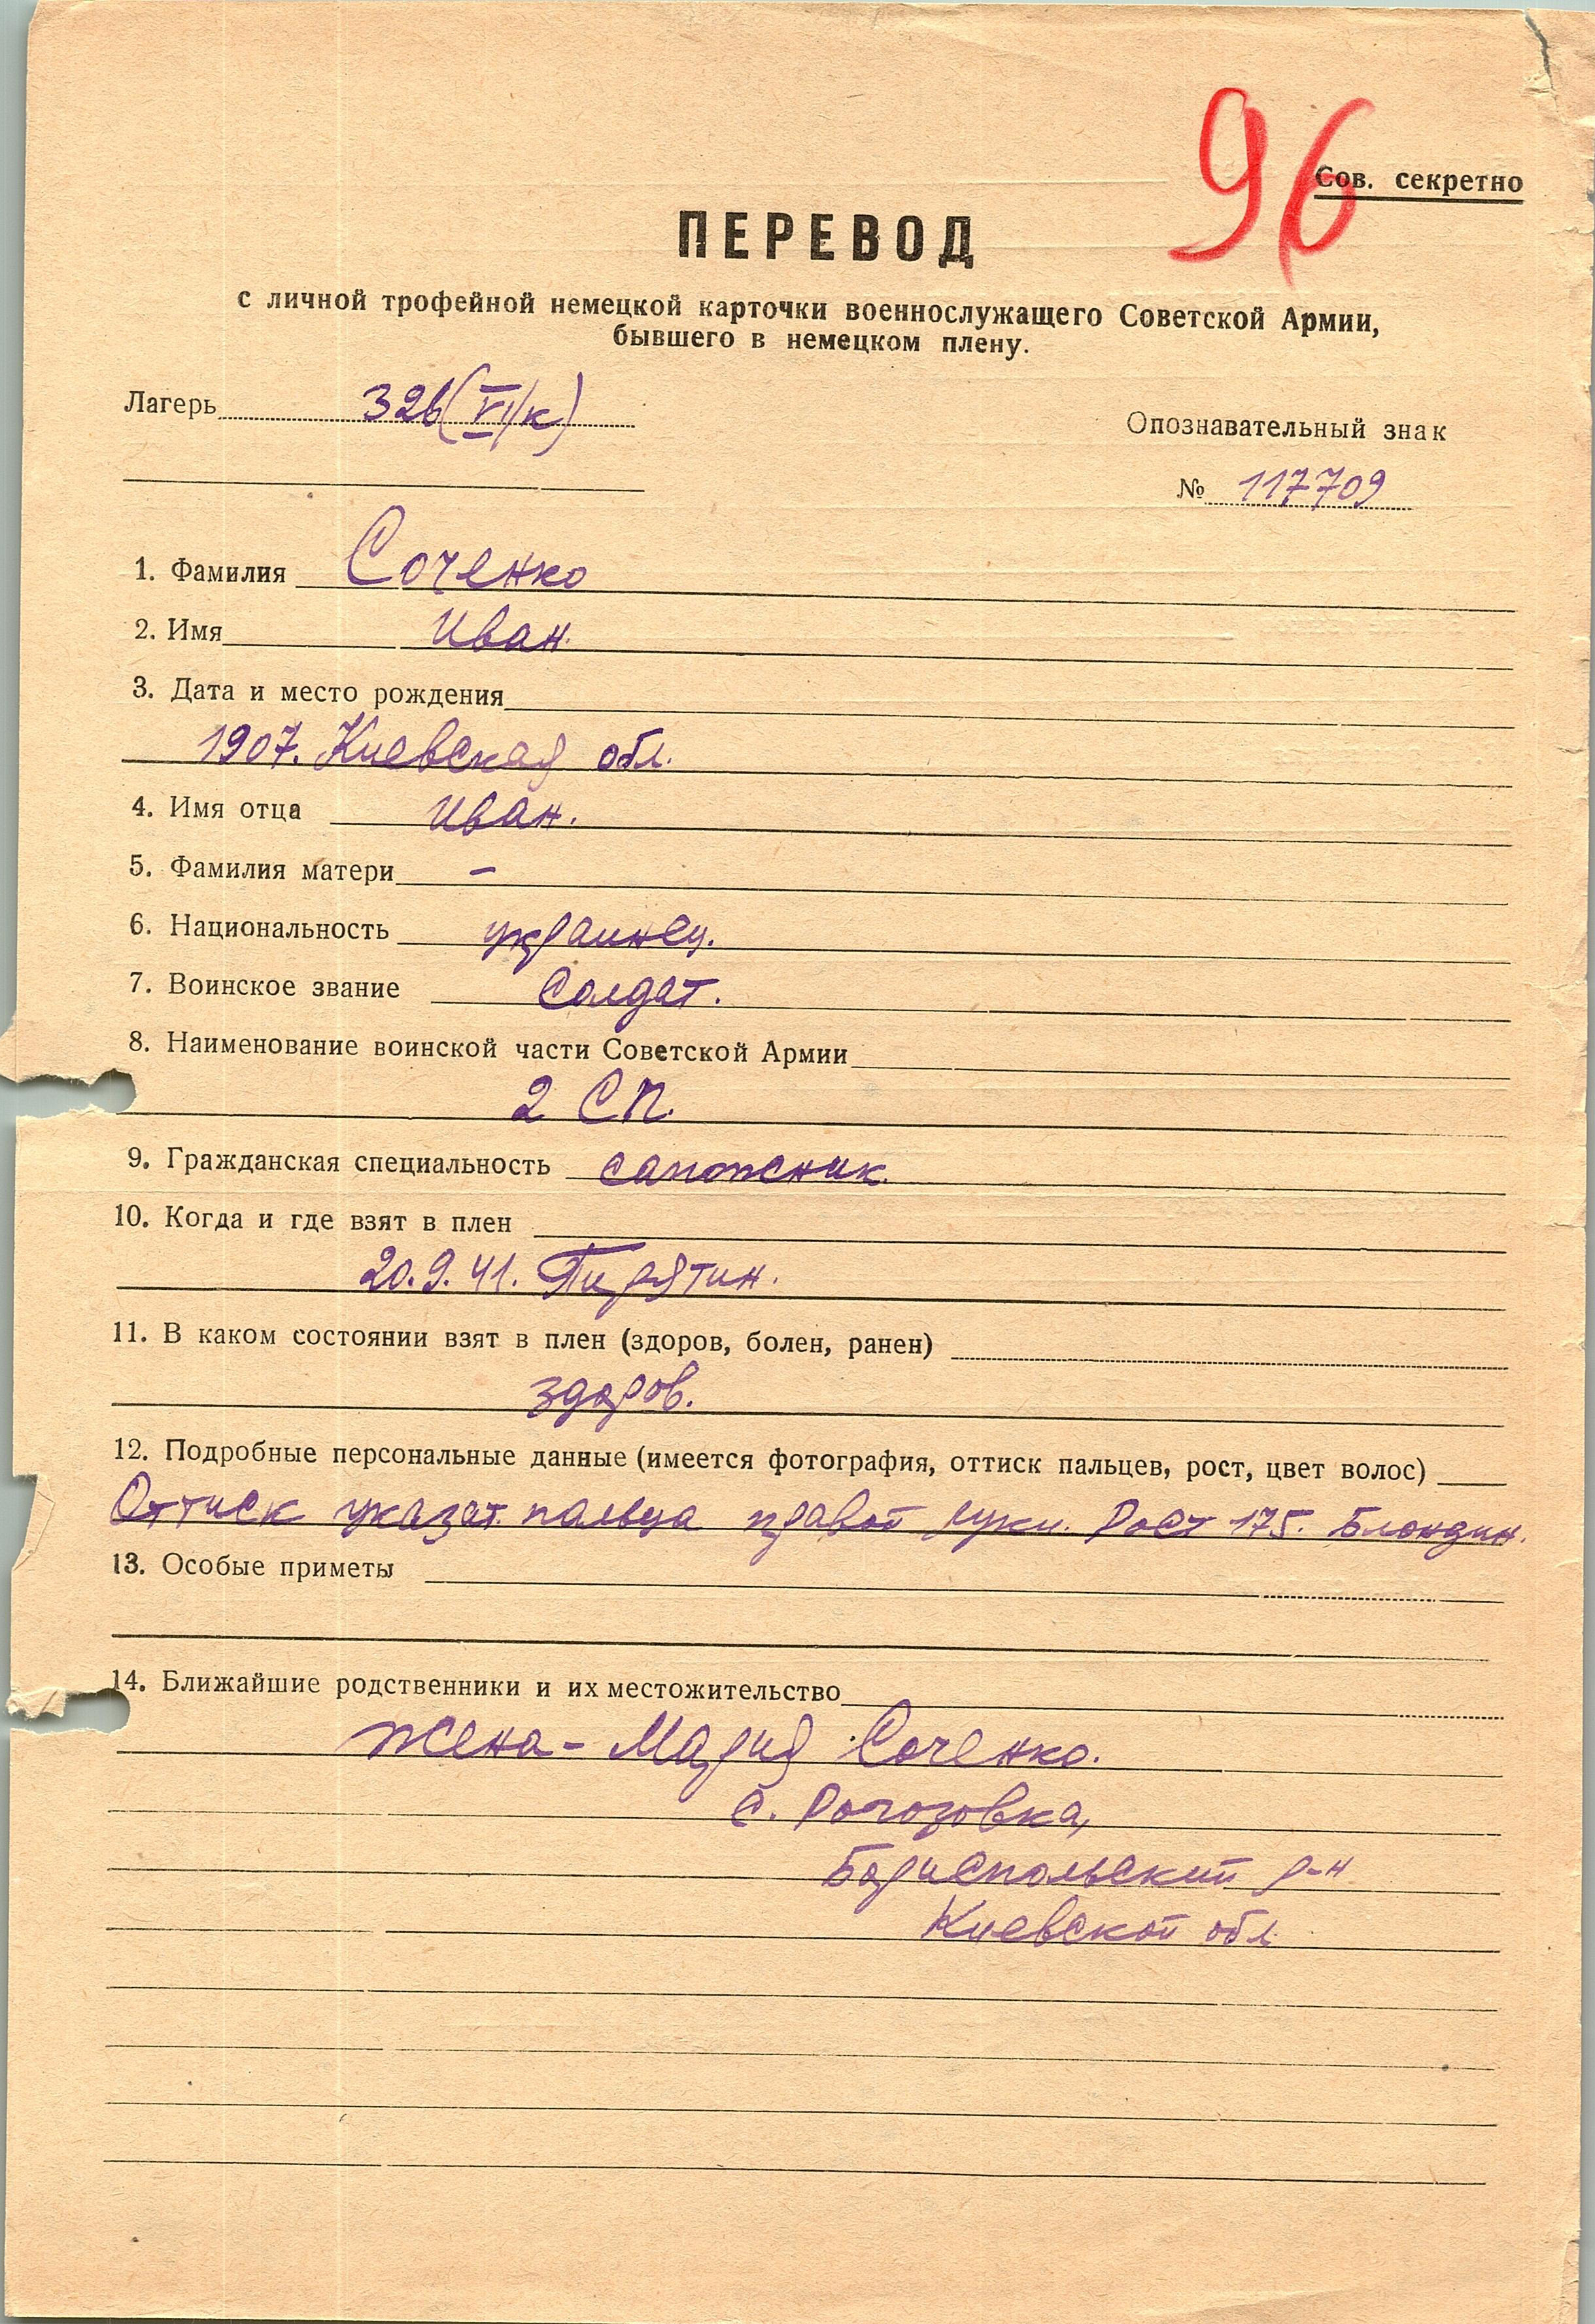 96
Сов. секретно
ПЕРЕВОД
с личной трофейной немецкой карточки военнослужащего Советской Армии,
бывшего в немецком плену.
Лагерь 326 (VI/к)
Опознавательный знак
№ 117709
1. Фамилия Соченко
2. Имя Иван.
3. Дата и место рождения
1907. Киевская обл.
4. Имя отца Иван.
5. Фамилия матери –
6. Национальность украинец.
7. Воинское звание Солдат.
8. Наименование воинской части Советской Армии
2 СП.
9. Гражданская специальность сапожник.
10. Когда и где взят в плен
20.9.41. Пирятин.
11. В каком состоянии взят в плен (здоров, болен, ранен)
здоров.
12. Подробные персональные данные (имеется фотография, оттиск пальцев, рост, цвет волос)
Оттиск указат. пальца правой руки. Рост 175. Блондин.
13. Особые приметы
14. Ближайшие родственники и их местожительство
Жена – Мария Соченко.
с. Рогозовка,
Бориспольский р-н
Киевской обл.